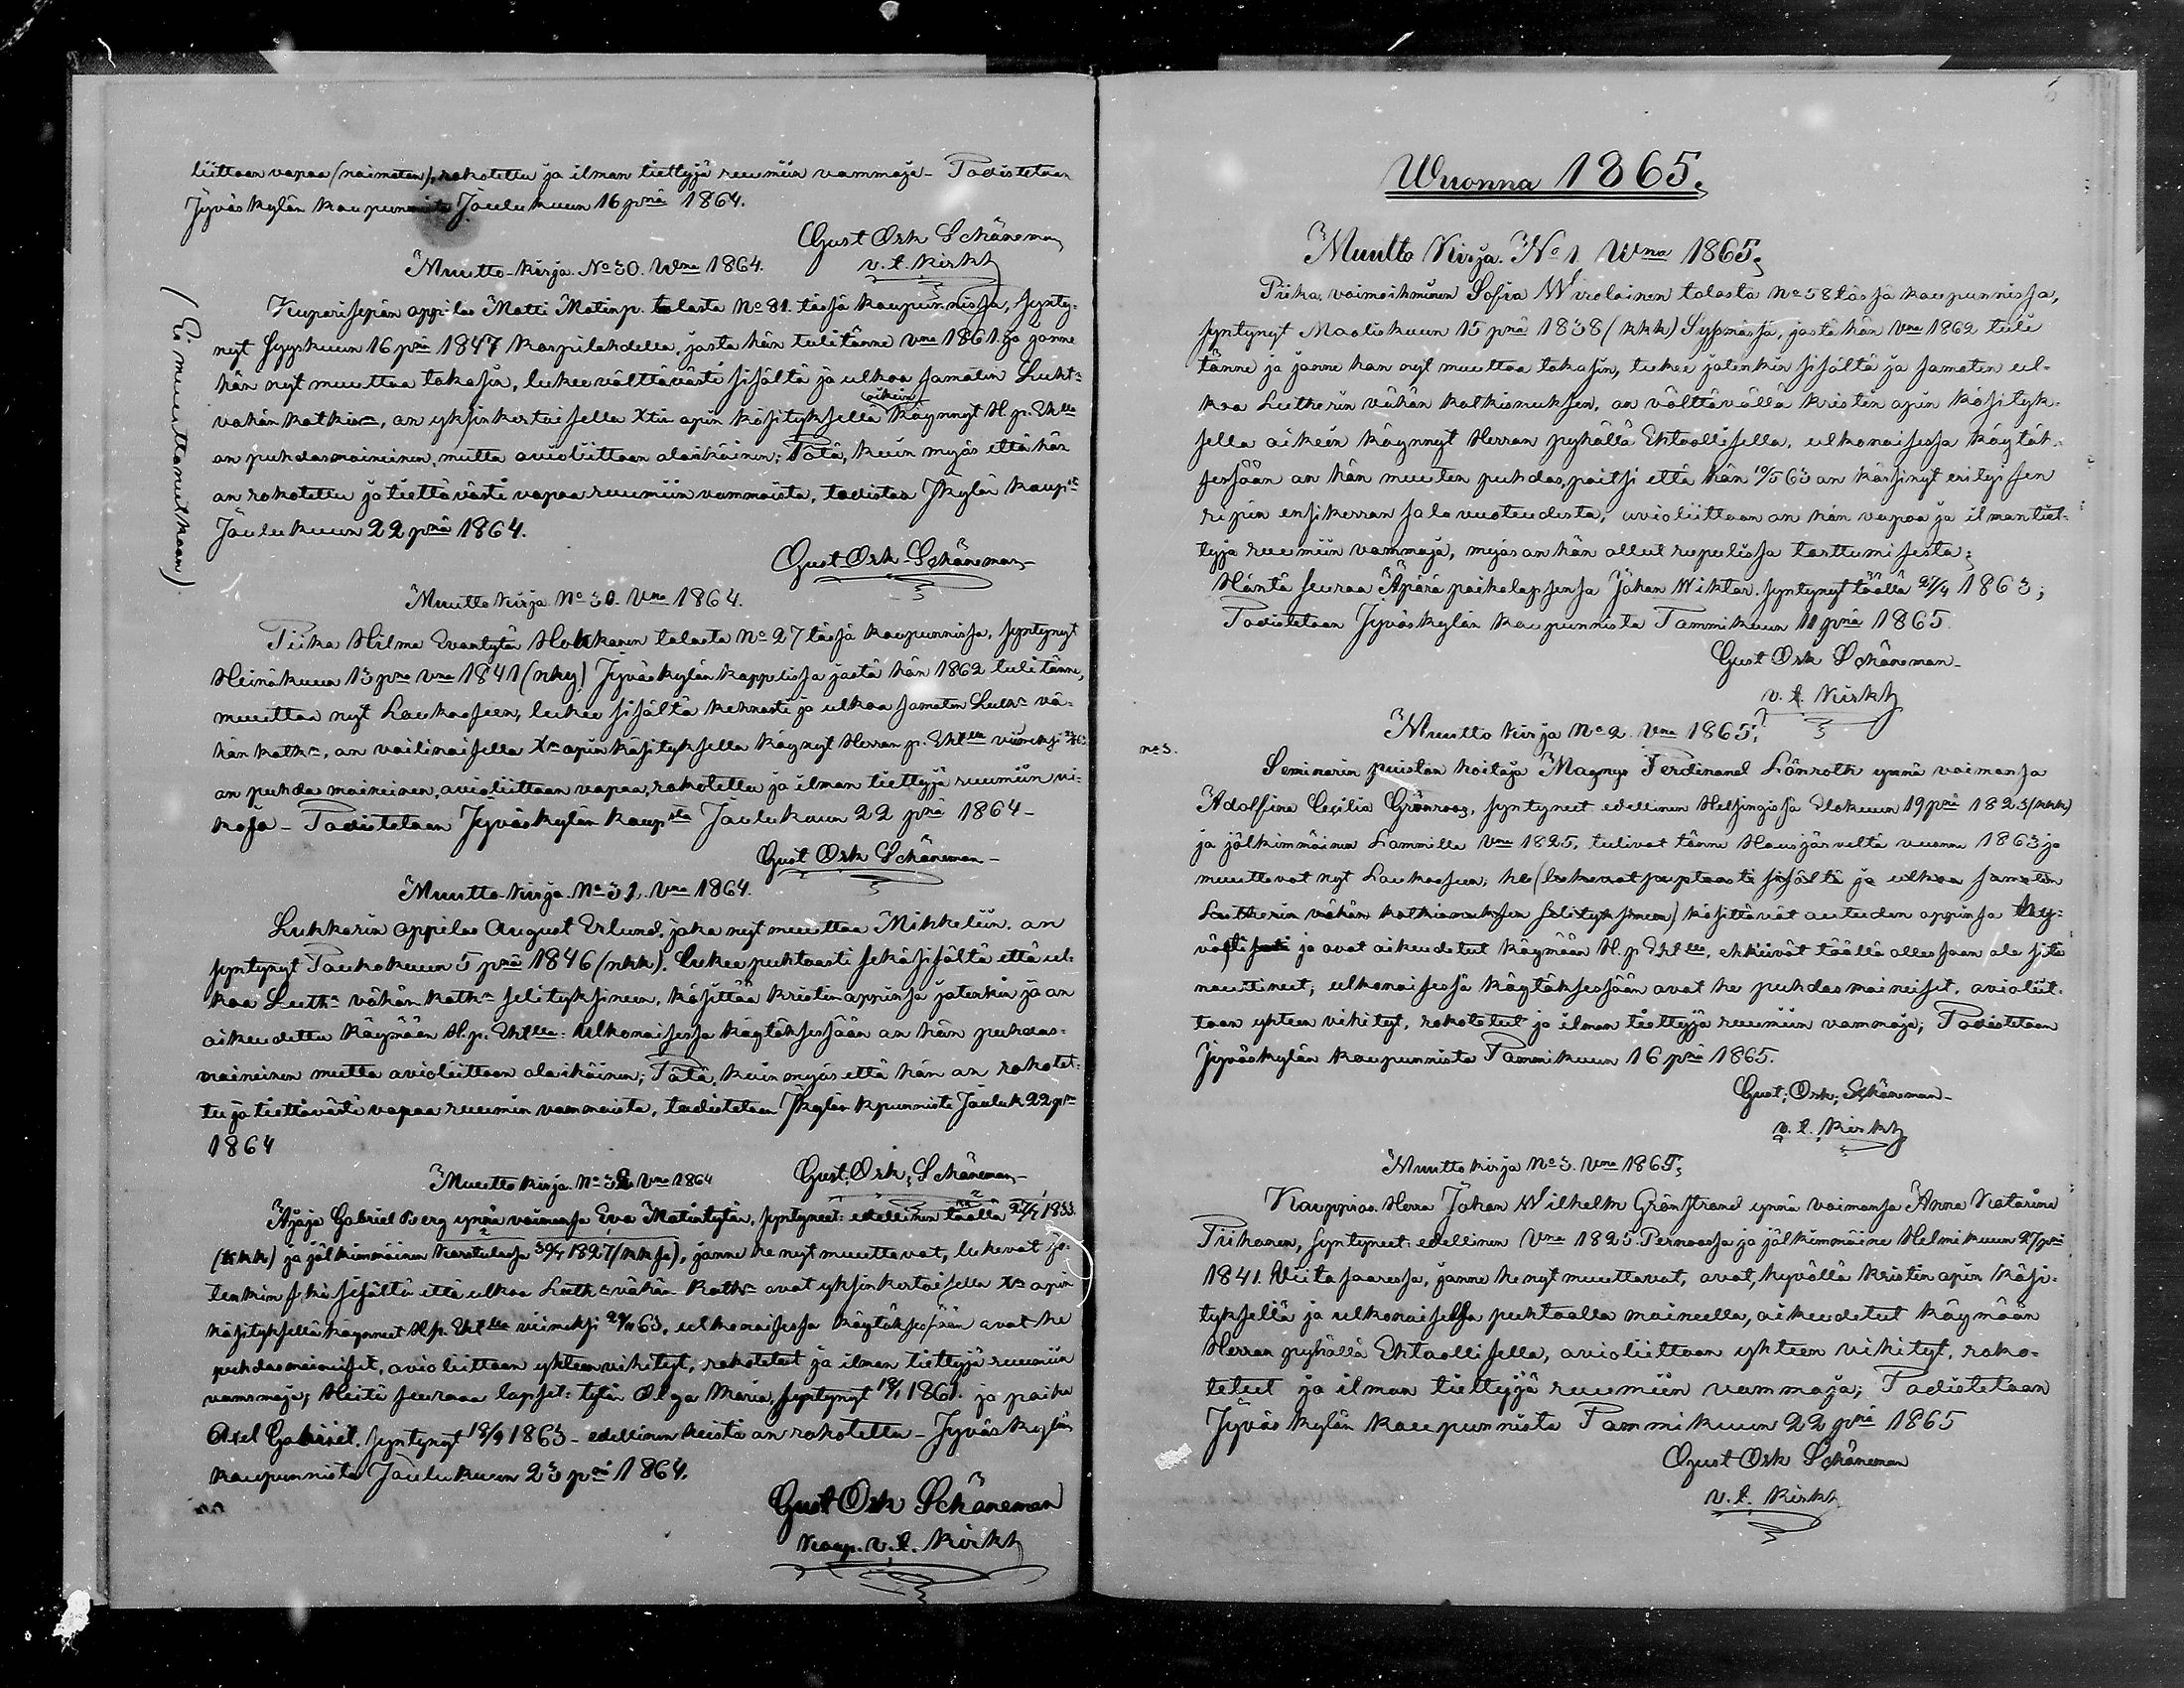 liittoon vapaa (naimaton), rokotettu ja ilman tiettyjä ruumiin vammoja - Todistetaan
Jyväskylän kaupunnista Joulukuun 16 pnä 1864.
Gust Osk Schöneman
v. t. Kirkh
Muutto-kirja No 30. Wna 1864.
Kuparisepän oppilas Matti Matinp. talosta No 81. tässä kaupunnissa, synty-
nyt Syyskuun 16 pnä 1847 Korpilahdella, josta hän tuli tänne vna 1861. ja jonne
hän nyt muuttaa takasin, lukee välttävästi sisältä ja ulkoa samatin Luth:
vähän katkin, on yksinkertaisella Xtin opin käsityksellä oikein käynnyt H. p. Ehtlla
on puhdasmaineinen, mutta avioliittoon alaikäinen; Tätä, kuin myös että hän
on rokotettu ja tiettävästi vapaa ruumiin vammoista, todistaa Jkylän kaupsta
Joulukuun 22 pnä 1864.
Gust Osk Schöneman
(Ei muuttanutkaan)
Muutto kirja No 30. Vna 1864.
Piika Hilma Evantytär Hokkanen talosta No 27 tässä kaupunnissa, syntynyt
Heinäkuun 13 pnä vna 1841 (nky) Jyväskylän kappelissa josta hän 1862 tuli tänne,
muuttaa nyt Laukaaseen, lukee sisältä kehnosti ja ulkoa samaten Luthn vä-
hän kathn, on vaillinaisella Xn opin käsityksellä käynyt Herran p. Ehtlla viimeksi
on puhdas maineinen, avioliittoon vapaa, rokotettu ja ilman tiettyjä ruumiin vi-
koja - Todistetaan Jyväskylän kaupsta Joulukuun 22 pnä 1864 -
Gust Osk Schöneman -
Muutto-kirja No 31. Vna 1864.
Lukkarin oppilas August Erlund, joka nyt muuttaa Mikkeliin, on
syntynyt Toukokuun 5 pnä 1846 (nkk). Lukee puhtaasti sekä sisältä että ul-
koa Luthn vähän kathn selityksineen, käsittää kristin oppinsa jotenkin ja on
oikeudettu käymään H. p. Ehtlla: Ulkonaisessa käytöksessään on hän puhdas-
maineinen mutta avioliittoon alaikäinen; Tätä, kuin myös että hän on rokotet-
tu ja tiettävästi vapaa ruumin vammoista, todistetaan Jkylän kpunnista Jouluk 22 pnä
1864
Gust. Osk; Schöneman -
Muutto kirja No 32 Vna 1864
Ajaja Gabriel Berg ynnä vaimonsa Eva Matintytär, syntyneet: edellinen täällä 27/7 1833.
(kkk) ja jälkimmäinen Karstulassa 30/7 1827 (kksa), jonne he nyt muuttavat, lukevat jo-
tenkin sekä sisältä että ulkoa Luthn vähän Kathn ovat yksinkertaisella Xn opin
käsityksellä käynneet H. p. Ehtlla viimeksi 63, ulkonaisessa käytöksessään ovat he
puhdasmaineiset, avioliittoon yhteen vihityt, rokotetut ja ilman tiettyjä ruumiin
vammoja; Heitä seuraa lapset: tytär Olga Maria, syntynyt 18/1 1861. ja poika
Axel Gabriel. syntynyt 18/9 1863 - edellinen heistä on rokotettu - Jyväskylän
kaupunnista Joulukuun 23 pnä 1864.
Gust Osk Schöneman
Kaup. v. t. Kirkh
Wuonna 1865.
Muutto Kirja. No 1. Wna 1865.
Piika, vaimoihminen Sofia Wirolainen talosta No 58 tässä kaupunnissa,
syntynyt Maaliskuun 15 pnä 1838 (kkk) Sysmässä, josta hän Vna 1862 tuli
tänne ja jonne hän nyt muuttaa takasin, lukee jotenkin sisältä ja samaten ul-
koa Lutherin vähän katkismuksen, on välttävällä kristin opin käsityk-
sellä oikein käynnyt Herran pyhällä Ehtoollisella, ulkonaisessa käytök-
sessään on hän muuten puhdas, paitsi että hän 10/5 63 on kärsinyt erityisen
ripin ensikerran salavuoteudesta, avioliittoon on hän vapaa ja ilman tiet-
tyjä ruumiin vammoja, myös on hän ollut rupulissa tarttumisesta;
Häntä seuraa Äpärä poikalapsensa Johan Wiktor. syntynyt täällä 27/4 1863;
Todistetaan Jyväskylän kaupunnista Tammikuun 11 pnä 1865.
Gust Osk Schöneman -
v. t. Kirkh
Muutto kirja No 2. Vna 1865.
no 3.
Seminarin puiston hoitaja Magnus Ferdinand Lönroth ynnä vaimonsa
Adolfina Cecilia Grönroos, syntyneet edellinen Helsingissä Elokuun 19 pnä 1823 (kkk)
ja jälkimmäinen Lammilla Vna 1825, tulivat tänne Hausjärveltä vuonna 1863 ja
muuttavat nyt Laukaaseen, he (lukevat puhtaasti sisältä ja ulkoa samaten
Lutherin vähän katkismuksen selityksineen) käsittävät autuuden oppinsa
ja ovat oikeudetut käymään H. p. Ehtlla, ehkä eivät täällä ollessaan ole sitä
nauttineet; ulkonaisessa käytöksessään ovat he puhdasmaineiset, avioliit-
toon yhteen vihityt, rokotetut ja ilman tiettyjä ruumiin vammoja; Todistetaan
Jyväskylän kaupunnista Tammikuun 16 pnä 1865.
Gust; Osk; Schöneman -
v. t. Kirkh
Muutto kirja No 3. Vna 1865;
Kauppias Herra Johan Wilhelm Grönstrand ynnä vaimonsa Anna Katarina
Piikanen, syntyneet: edellinen Vna 1825 Pernaassa ja jälkimmäine Helmikuun 27 pnä
1841. Viitasaaressa, jonne he nyt muuttavat, ovat, hyvällä kristin opin käsi-
tyksellä ja ulkonaisessa puhtaalla maineella, oikeudetut käymään
Herran pyhällä Ehtoollisella, avioliittoon yhteen vihityt, roko-
tetut ja ilman tiettyjä ruumiin vammoja; Todistetaan
Jyväskylän kaupunnista Tammikuun 22 pnä 1865
Gust Osk Schöneman
v. t. Kirkh